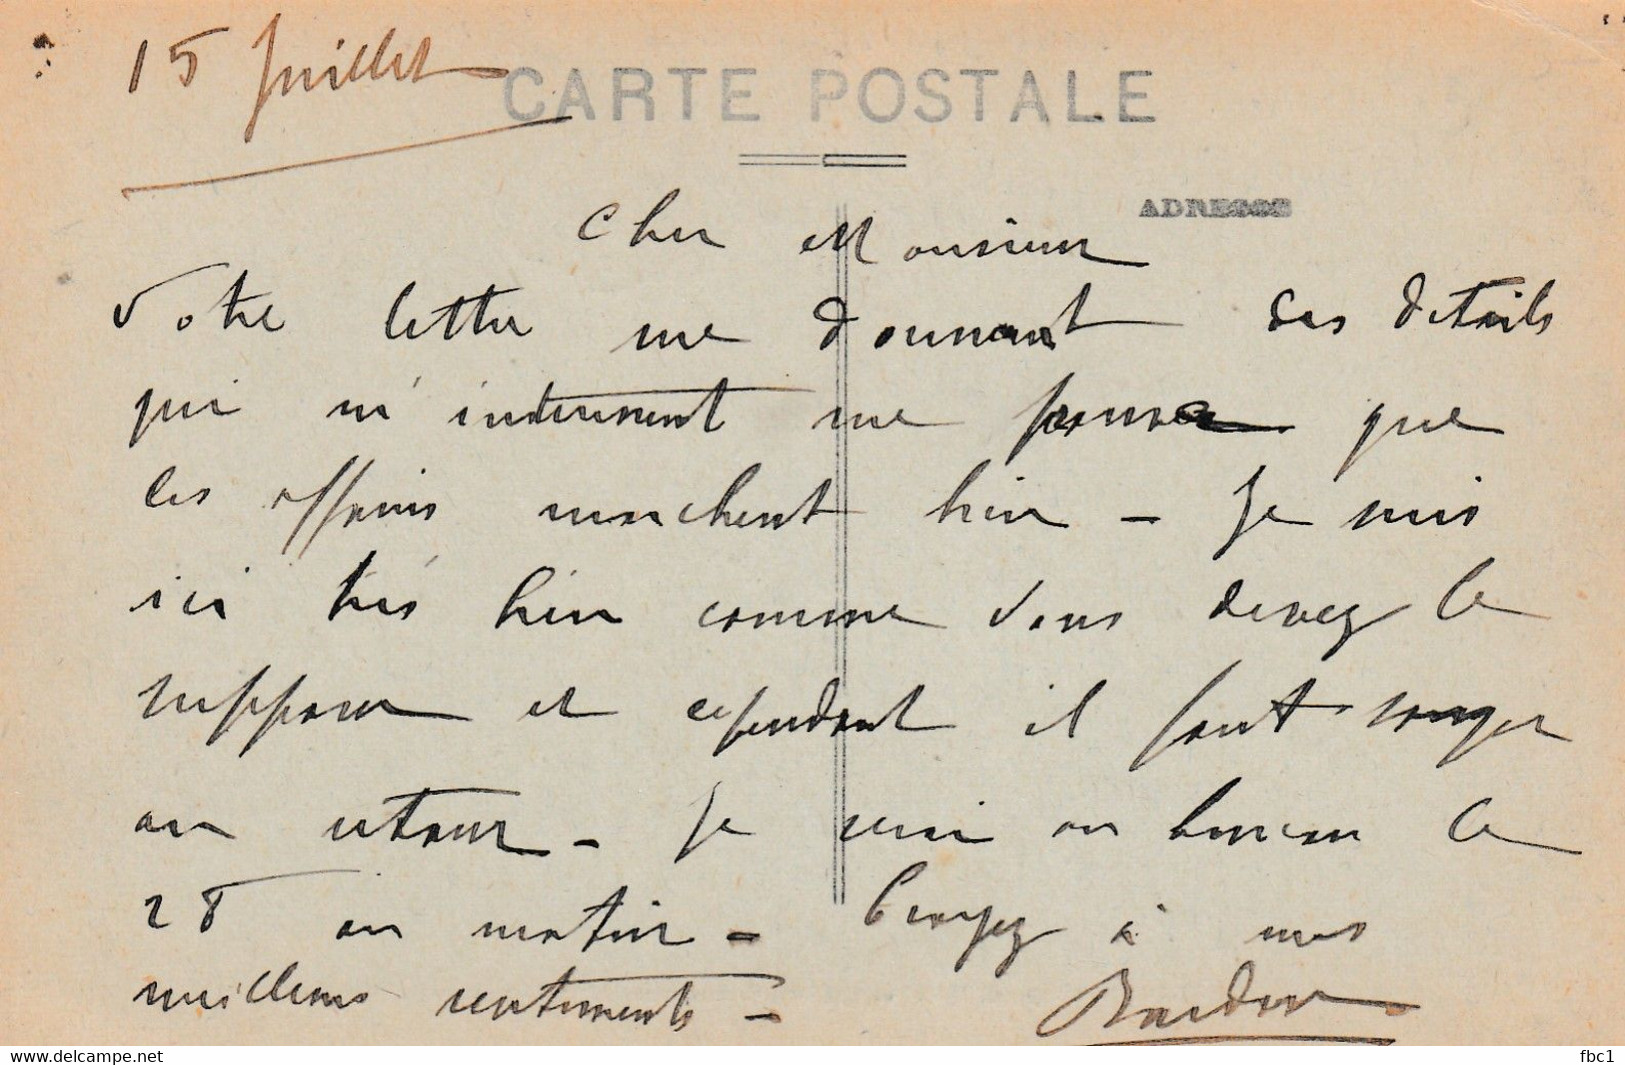 15 Juillet
CARTE POSTALE
ADRESSE
Cher Monsieur
Votre lettre me donnant des details
qui m'interessent me prouve que
les affaires marchent bien – Je suis
ici très bien comme vous devez le
supposer et cependant il faut songer
au retour – Je serai au bureau le
28 au matin – Croyez à mes
meilleurs sentiments –
delcampe.net
fbc1